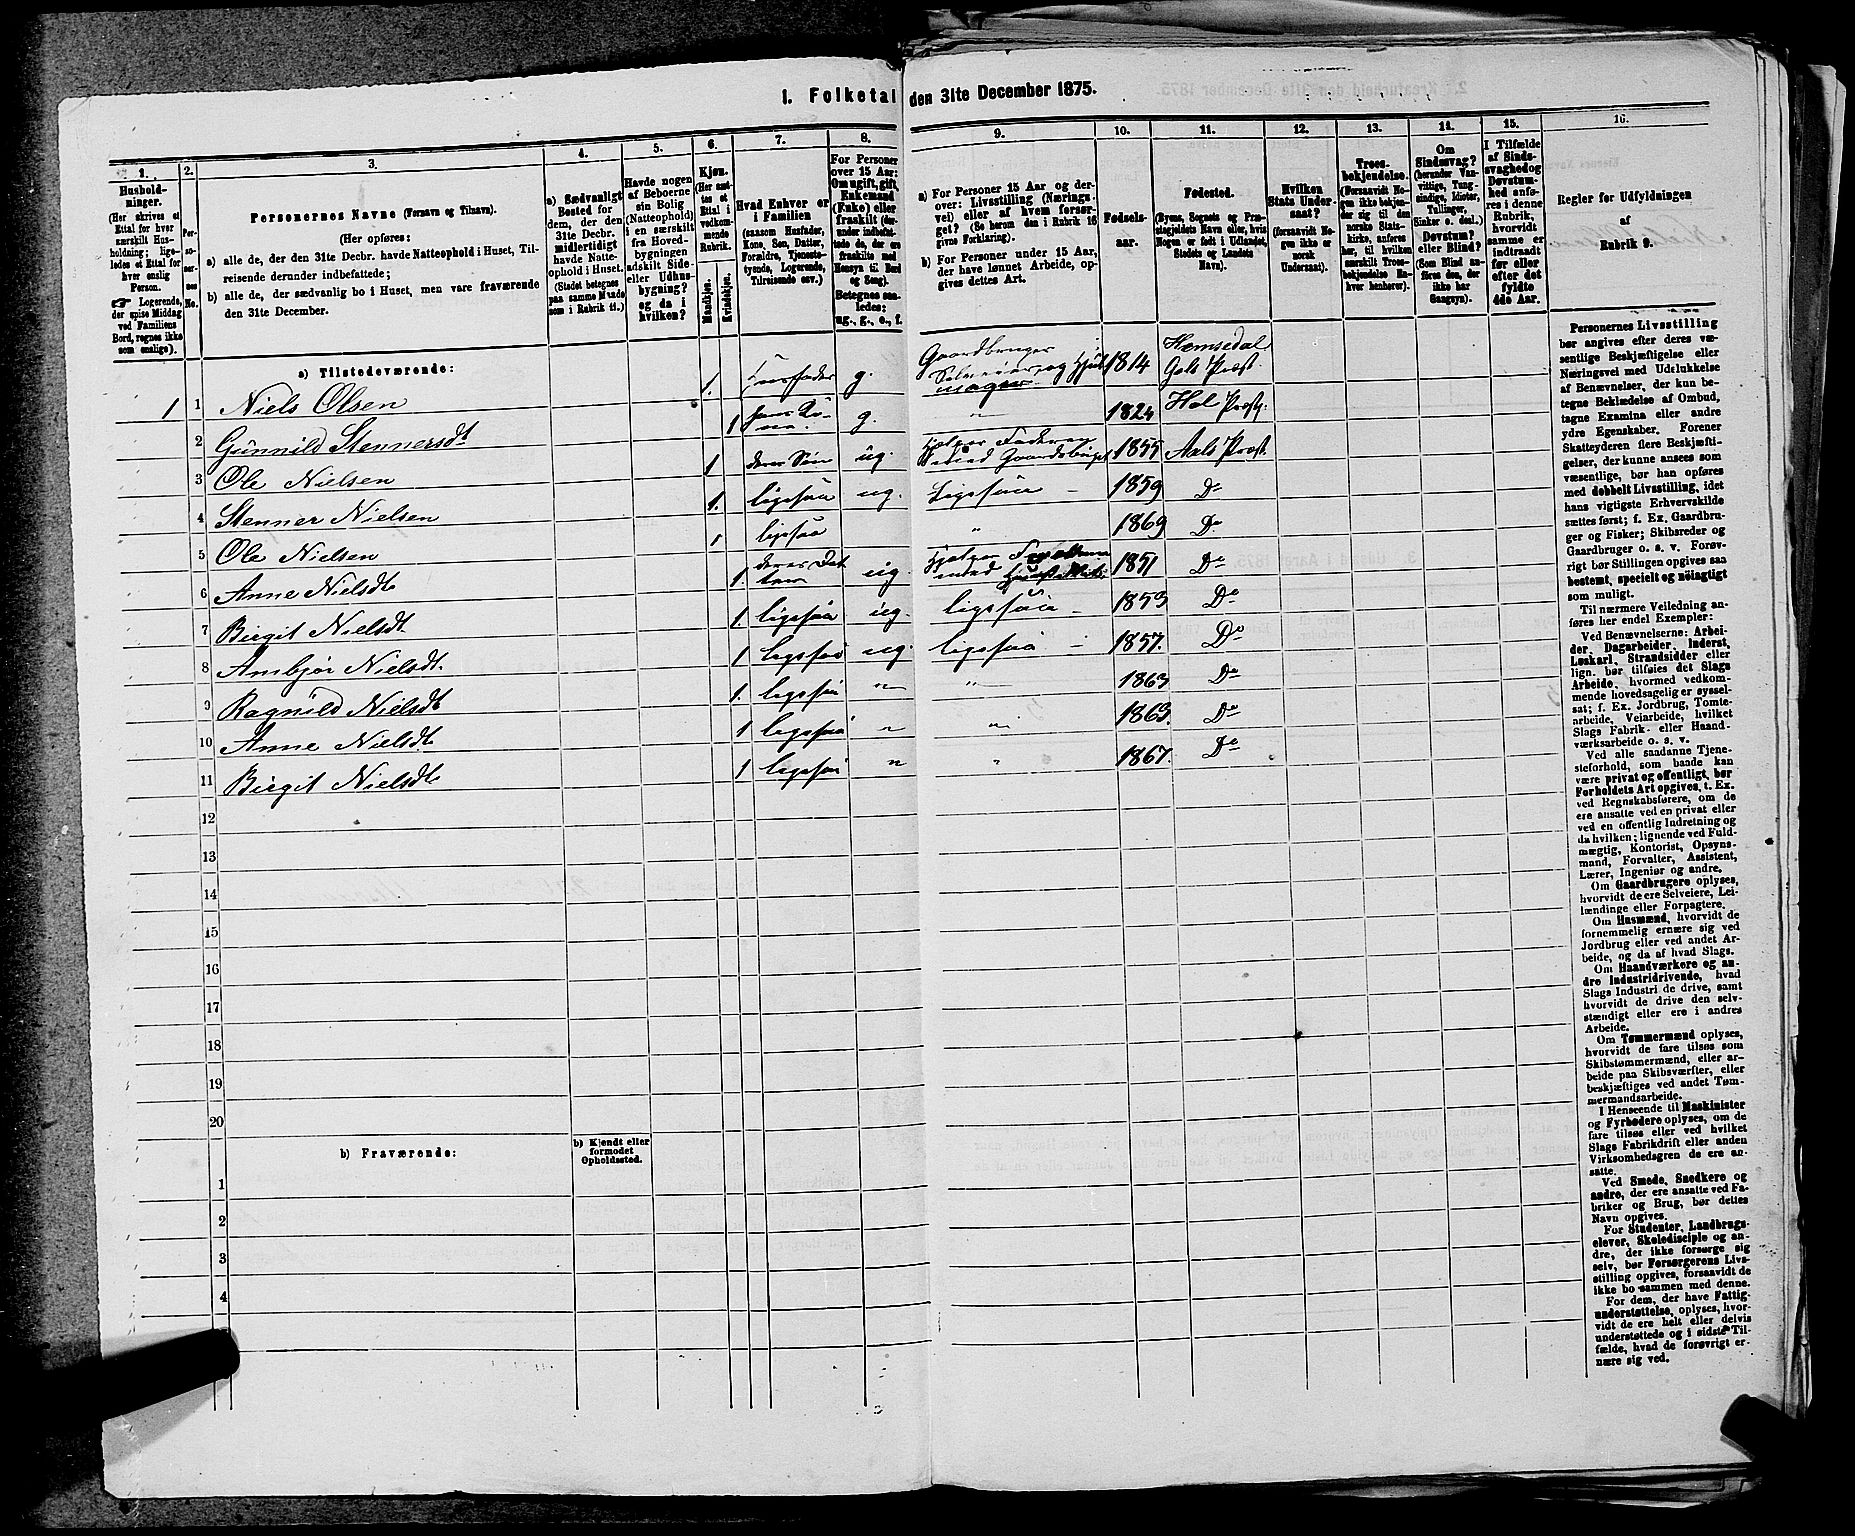 1. Folketal den 31te December 1875.
1.
Hushold-
ninger.
(Her skrives et
Ettal for hver
særskilt Hus-
holdning; lige-
ledes et Ettal for
hver enslig
Person.
☛ Logerende,
der spise Middag
ved Familiens
Bord, regnes ikke
som enslige).
2.
Per-
so-
ner-
nes
No.
3.
Personernes Navne (Fornavn og Tilnavn).
(Her opføres:
a) alle de, der den 31te Decbr. havde Natteophold i Huset, Til-
reisende derunder indbefattede;
b) alle de, der sædvanlig bo i Huset, men vare fraværende
den 31te December.
4.
a) Sædvanligt
Bosted for
dem, der den
31te Decbr.
midlertidigt
havde Natte-
ophold i Huset.
(Stedet betegnes
paa samme Maade
som i Rubrik 11.)
5.
Havde nogen
af Beboerne
sin Bolig
(Natteophold)
i en særskilt
fra Hoved-
bygningen
adskilt Side-
eller Udhus-
bygning?
og da i
hvilken?
6.
Kjøn.
(Her sæt-
tes et
Ettal i
vedkom-
mende
Rubrik.
Mandkjøn.
Kvindekjøn.
7.
Hvad Enhver er
i Familien
(saasom Husfader,
Kone, Søn, Datter,
Forældre, Tjeneste-
tyende, Logerende,
Tilreisende osv.)
8.
For Personer
over 15 Aar:
Om ugift, gift,
Enkemand
(Enke) eller
fraskilt (der-
under indbefat-
tede de, der ere
fraskilte med
Hensyn til Bord
og Seng).
Betegnes saa-
ledes:
ug., g., e., f.
9.
a) For Personer 15 Aar og der-
over: Livsstilling (Nærings-
vei) eller af hvem forsør-
get? (Se herom den i Rubrik 16
givne Forklaring).
b) For Personer under 15 Aar,
der have lønnet Arbeide, op-
gives dettes Art.
10.
Fødsels-
aar.
11.
Fødested.
(Byens, Sognets og Præ-
stegjeldets Navn eller, hvis
Nogen er født i Udlandet,
Stedets og Landets
Navn).
12.
Hvilken
Stats Under-
saat?
(forsaavidt No-
gen ikke er
norsk
Undersaat).
13.
Troes-
bekjendelse.
(Forsaavidt No-
gen ikke bekjen-
der sig til den
norske Stats-
kirke, anføres
her, til hvilken
særskilt Troes-
bekjendelse En-
hver henhører).
14.
Om
Sindssvag?
(herunder Van-
vittige, Tung-
sindige, Idioter,
Tullinger,
Sinker o. desl.)
Døvstum?
eller Blind?
(Som Blind an-
føres den, der
ikke har
Gangsyn).
15.
I Tilfælde
af Sinds-
svaghed og
Døvstum-
hed anfø-
res i denne
Rubrik,
hvorvidt
samme er
indtraadt
før eller
efter det
fyldte
4de Aar.
16.
Regler for Udfyldningen
af
Rubrik 9.
a) Tilstedeværende:
1 1 Niels Olsen 1. Husfader g. Gaardbruger Selveier, og Hjulmager 1814 Hemsedal Gols Præst.
2 Gunnild Stennersdt 1 hans Kone g. " 1824 Hol Præstj.
3 Ole Nielsen 1 deres Søn ug. hjelper Faderen med Gaardsbruget 1855 Aals Præst.
4 Stenner Nielsen 1. ligesaa ug. Ligesaa - 1859 Do
5 Ole Nielsen 1 ligesaa " 1869 Do
6 Anne Nielsdt 1. deres Datter ug. hjelper Forældrene med 1851 Do
7 Birgit Nielsdt. 1 ligesaa ug. ligesaa - 1853 Do
8 Ambjør Nielsdt. 1 ligesaa ug. ligesaa - 1857. Do
9 Ragnild Nielsdt 1. ligesaa " " 1863 Do
10 Anne Nielsdt 1 ligesaa " " 1863. Do
11 Birgit Nielsdt 1 ligesaa " " 1867. Do
12
13
14
15
16
17
18
19
20
b) Fraværende:
b) Kjendt eller
formodet
Opholdssted.
1
2
3
4
Personernes Livsstilling
bør angives efter deres væ-
sentlige Beskjæftigelse eller
Næringsvei med Udelukkelse
af Benævnelser, der kun be-
tegne Beklædelse af Ombud,
tagne Examina eller andre
ydre Egenskaber. Forener
Skatteyderen flere Beskjæfti-
gelser, der kunne ansees som
væsentlige, bør han opføres
med dobbelt Livsstilling, idet
hans vigtigste Erhvervskilde
sættes først; f. Ex. Gaardbru-
ger og Fisker; Skibsreder og
Gaardbruger o. s. v. Forøv-
rigt bør Stillingen opgives saa
bestemt, specielt og nøiagtigt
som muligt.
Til nærmere Veiledning an-
føres her endel Exempler:
Ved Benævnelserne: Arbei-
der, Dagarbeider, Inderst,
Løskarl, Strandsidder eller
lign. bør tilføies det Slags
Arbeide, hvormed vedkom-
mende hovedsagelig er syssel-
sat; f. Ex. Jordbrug, Tomte-
arbeide, Veiarbeide, hvilket
Slags Fabrik- eller Haand-
værksarbeide o. s. v.
Ved alle saadanne Tjene-
steforhold, som baade kan
være privat og offentligt, bør
Forholdets Art opgives, t. Ex.
ved Regnskabsførere, om de
ere ansatte ved en privat eller
ved en offentlig Indretning og
da hvilken; lignende ved Fuld-
mægtig, Kontorist, Opsyns-
mand, Forvalter, Assistent,
Lærer, Ingeniør og andre.
Om Gaardbrugere oplyses,
hvorvidt de ere Selveiere, Lei-
lændinge eller Forpagtere.
Om Husmænd, hvorvidt de
fornemmelig ernære sig ved
Jordbrug eller ved andet Ar-
beide, og da af hvad Slags.
Om Haandværkere og an-
dre Industridrivende, hvad
Slags Industri de drive, samt
hvorvidt de drive den selv-
stændigt eller ere i andres
Arbeide.
Om Tømmermænd oplyses,
hvorvidt de fare tilsøs som
Skibstømmermænd, eller ar-
beide paa Skibsværfter, eller
beskjæftiges ved andet Tøm-
mermandsarbeide.
I Henseende til Maskinister
og Fyrbødere oplyses, om de
fare tilsøs eller ved hvilket
Slags Fabrikdrift eller anden
Virksomhedsgren de ere an-
satte.
Ved Smede, Snedkere og
andre, der ere ansatte ved Fa-
briker og Brug, bør dettes
Navn opgives.
For Studenter, Landbrugs-
elever, Skoledisciple og an-
dre, der ikke forsørge sig
selv, bør Forsørgerens Livs-
stilling opgives, forsaavidt de
ikke bo sammen med denne.
For dem, der have Fattig-
understøttelse, oplyses, hvor-
vidt de ere helt eller delvis
understøttede og i sidste Til-
fælde, hvad de forøvrigt er-
nære sig ved.